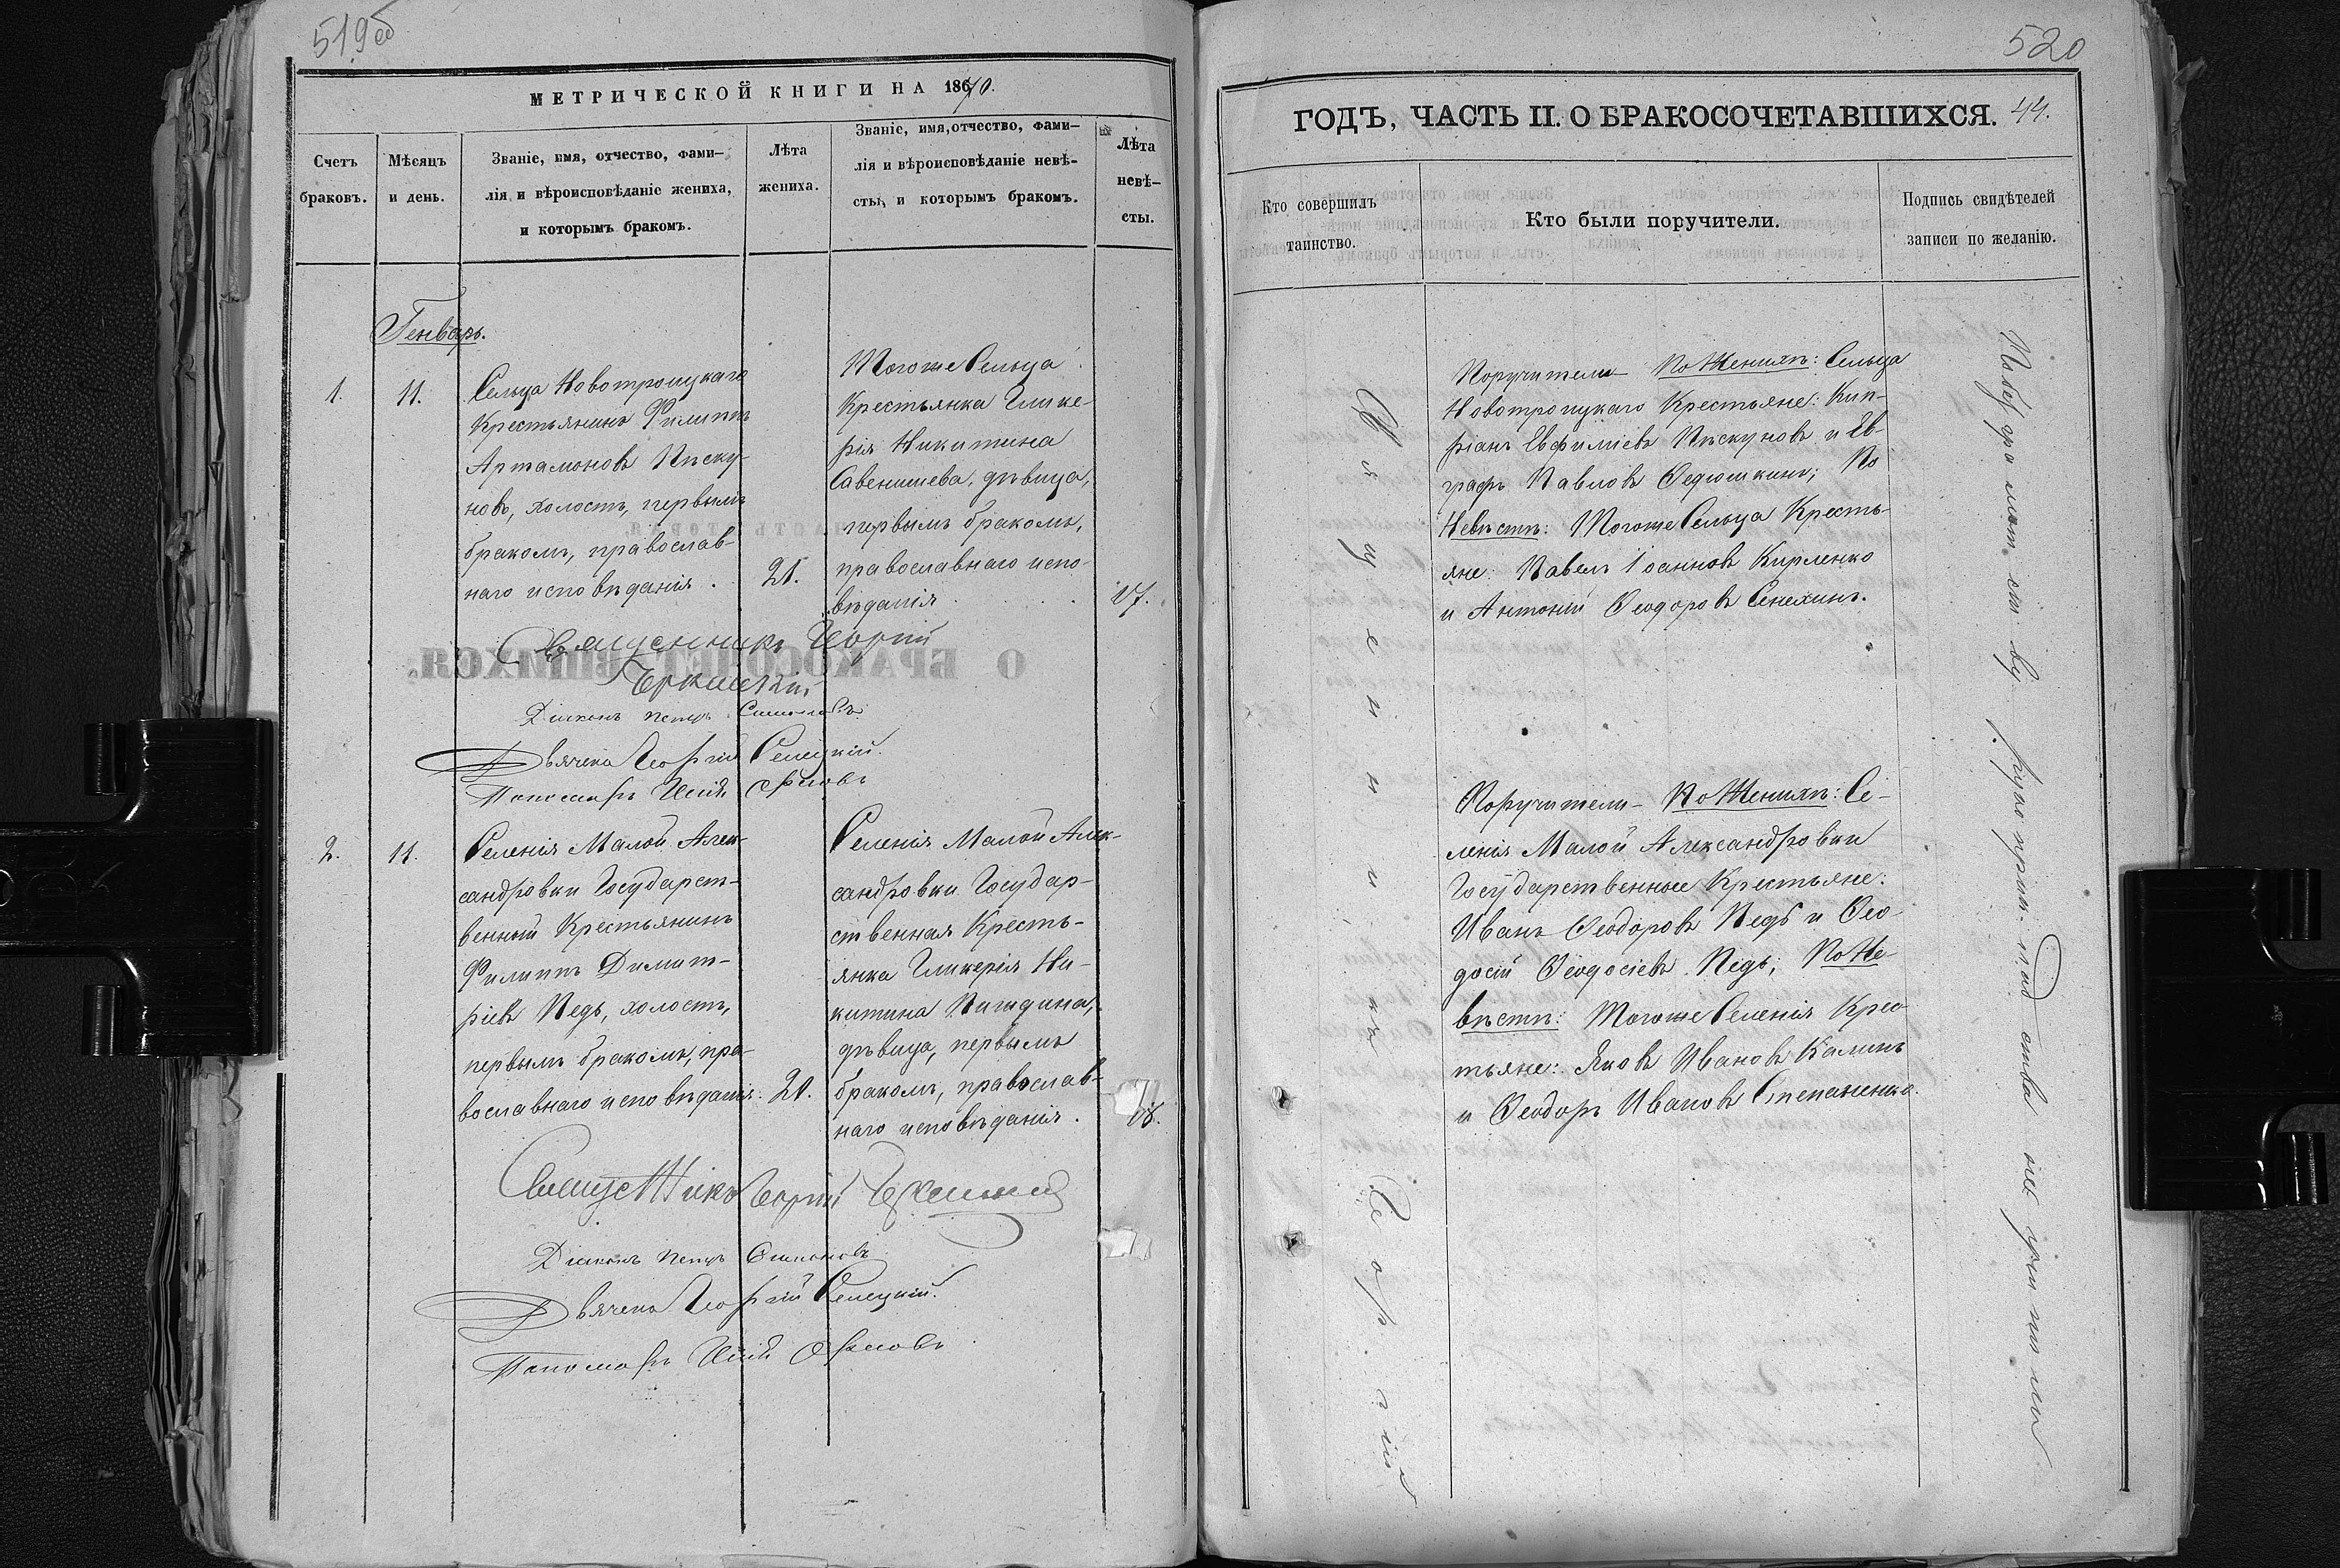 519 об
МЕТРИЧЕСКОЙ КНИГИ НА 1870.
Счетъ
браковъ.
Мѣсяцъ
и день.
Званіе, имя, отчество, фами-
лія и вѣроисповѣданіе жениха,
и которымъ бракомъ.
Лѣта
жениха.
Званіе, имя, отчество, фами-
лія и вѣроисповѣданіе невѣ-
сты, и которымъ бракомъ.
Лѣта
невѣ-
сты.
Генварь.
1.
11.
Сельца Новотроицкаго
Крестьянинъ Филиппъ
Артамоновъ Пѣску-
новъ, холостъ, первымъ
бракомъ, православ-
наго исповѣданія.
21.
Тогоже Сельца
Крестьянка Глике-
рія Никитина
дѣвица,
первымъ бракомъ,
православнаго испо-
вѣданія
17.
Священникъ Георгій
Діаконъ Петръ Симоновъ
Дьячекъ Георгій Селецкій.
Пономарь Илія Орловъ
2.
11.
Селенія Малой Алек-
сандровки Государст-
венный Крестьянинъ
Филиппъ Димит-
ріевъ Педь, холостъ,
первымъ бракомъ, пра-
вославнаго исповѣданія.
20.
Селенія Малой Алек-
сандровки Государ-
ственная Кресть-
янка Гликерія Ни-
китина
дѣвица, первымъ
бракомъ, православ-
наго исповѣданія.
18.
Священникъ Георгій
Діаконъ Петръ Симоновъ
Дьячекъ Георгій Селецкій.
Пономарь Илія Орловъ
520
ГОДЪ, ЧАСТЬ II. О БРАКОСОЧЕТАВШИХСЯ. 44.
Кто совершилъ
таинство.
Кто были поручители.
Подпись свидѣтелей
записи по желанію.
Священникъ Георгій
Поручители По Женихѣ: Сельца
Новотроицкаго Крестьяне: Кип-
ріанъ Евфиміевъ Пѣскуновъ и Ев-
графъ Павловъ Ѳедюшкинъ; По
Невѣстѣ: Тогоже Сельца Кресть-
яне: Павелъ Іоанновъ Кириленко
и Антоній Ѳеодоровъ Сенехинъ.
Поручители - По Женихѣ: Се-
ленія Малой Александровки
Государственные Крестьяне:
Иванъ Ѳеодоровъ Педь и Ѳео-
досій Ѳеодосіевъ Педь; По Не-
вѣстѣ: Тогоже Селенія Крес-
тьяне: Яковъ Ивановъ Калинъ
и Ѳеодоръ Ивановъ Степаненко.